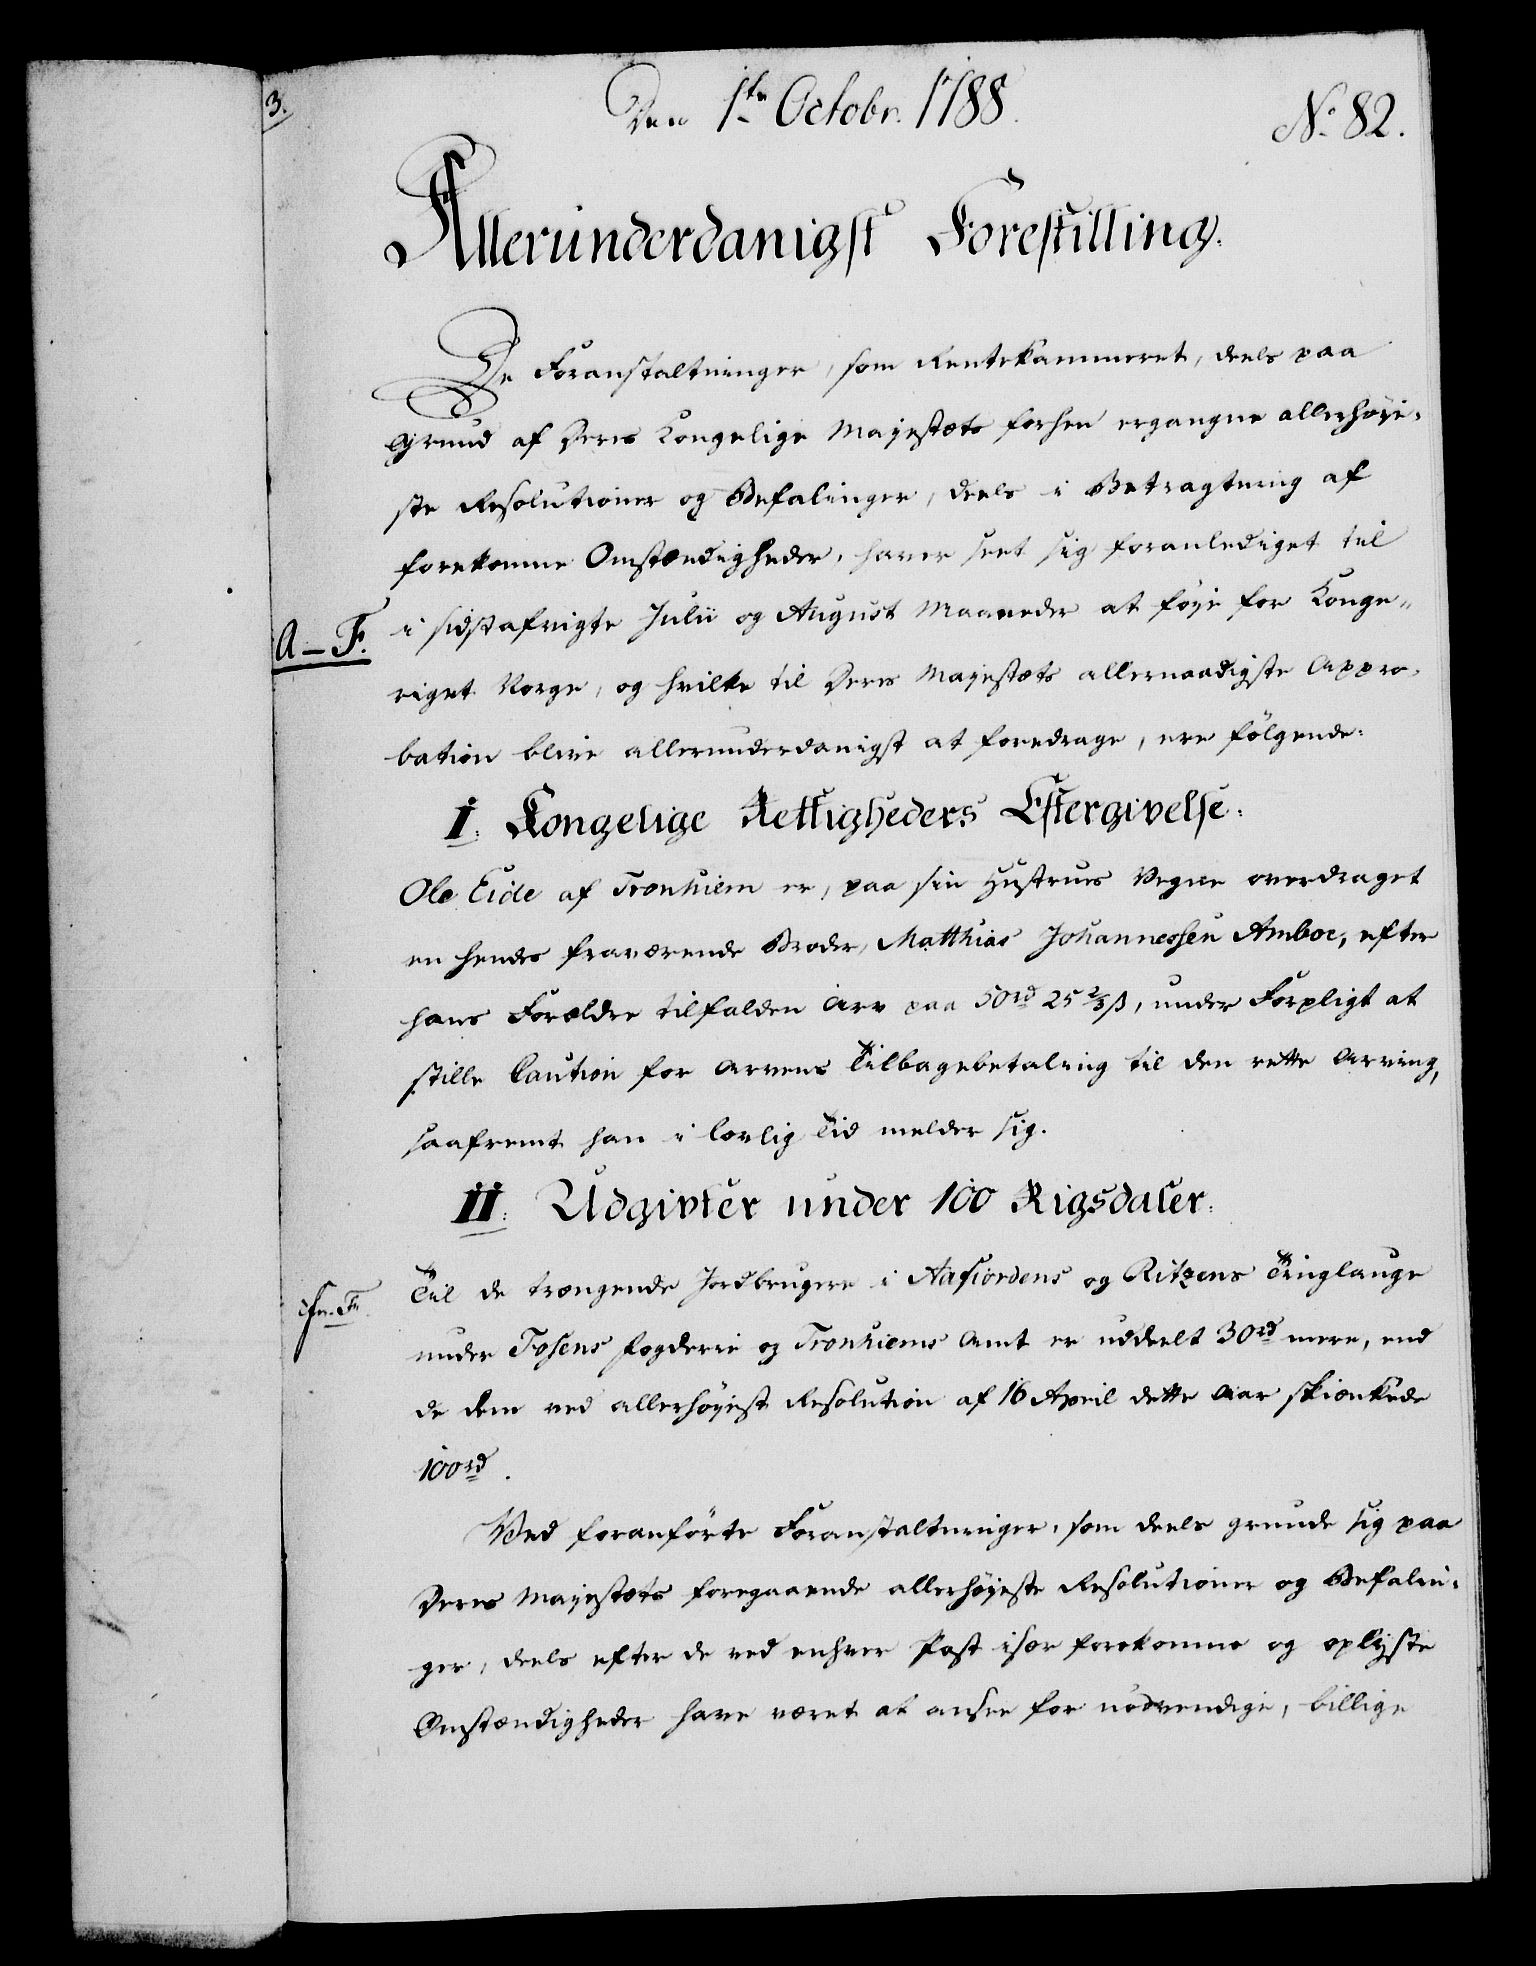 3.
Den 1ste Octobr. 1788.
No. 82.
Allerunderdanigst Forestilling.
De Foranstaltninger, som Rentekammeret, deels paa
Grund af Deres Kongelige Majestæts forhen ergangne allerhøye-
ste Resolutioner og Befalinger, deels i Betragtning af
forekomne Omstændigheder, haver seet sig foranlediget til
A-F.
i sidstafvigte Julii og August Maaneder at føye for Konge-
riget Norge, og hvilke til Deres Majestæts allernaadigste Appro-
bation blive allerunderdanigst at foredrage, ere følgende:
I: Kongelige Rettigheders Eftergivelse:
Ole Eide af Tronhiem er, paa sin Hustrues Vegne overdraget
en hendes fraværende Broder, Matthias Johannessen Amboe, efter
hans Forældre tilfalden Arv paa 50rd 25⅔ß, under Forpligt at
stille Caution for Arvens Tilbagebetaling til den rette Arving,
saafremt han i lovlig Tid melder sig.
II: Udgivter under 100 Rigsdaler:
Til de trængende Jordbrugere i Aafiordens og Ritzens Tinglauge
under Fosens Fogderie og Tronhiems Amt er uddeelt 30rd mere, end
de dem ved allerhøyest Resolution af 16 April dette Aar skiænkede
100rd.
Ved foranførte Foranstaltninger, som deels grunde sig paa
Deres Majestæts foregaaende allerhøyeste Resolutioner og Befalin-
ger, deels efter de ved enhver Post især forekomne og oplyste
Omstændigheder have været at ansee for nødvendige, billige